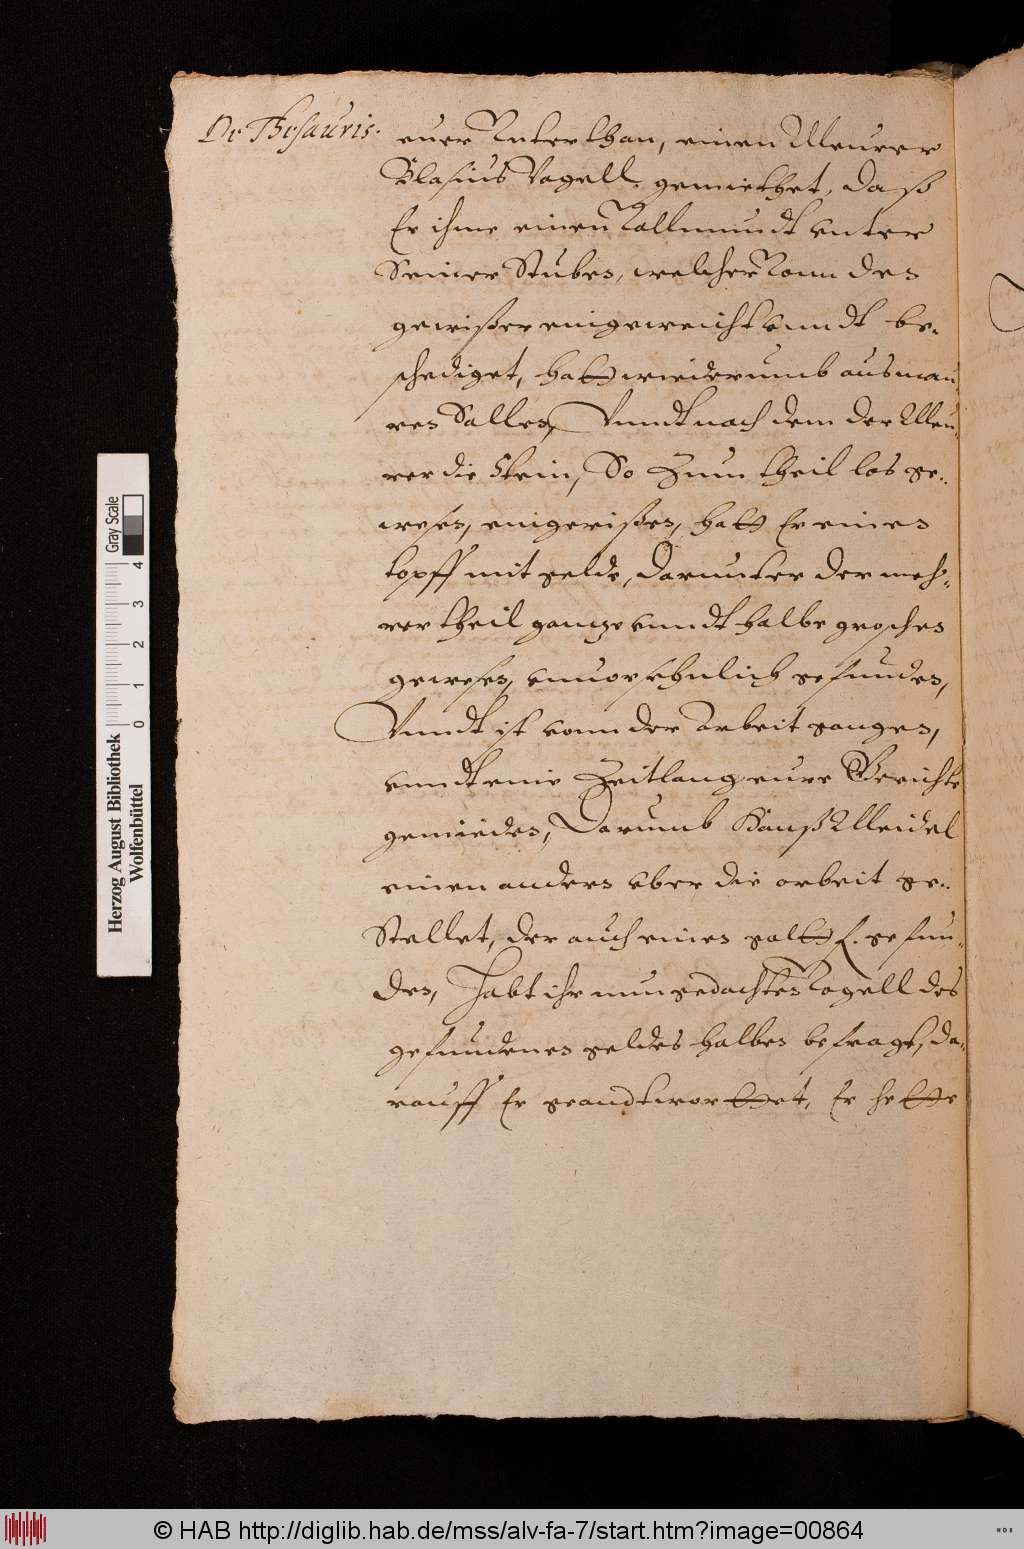 De Thesauris.
euer Unterthan, einen Meurer
Blasius Vogell, gemiethet, daß
Er ihme einen Kallmundt unter
Seiner Stuben, welcher vonn des
gewißer eingeweicht unndt be-
schediget, hatt wiederumb ausmau-
ren Sollen, Unndt nach dem der Meu-
rer die Stein, So Zum theil los ge-
wesen, eingerißen, hatt Er einen
topff mit gelde, darunter der meh-
rer theil gantze unndt halbe groschen
gewesen, unuorsehnlich gefunden,
Unndt ist vonn der Arbeit gangen,
unndt eine Zeitlang eure Gerichte
gemieden, Darumb Hanß Meidel
einen andern uber die arbeit ge-
Stellet, der auch einen gallt f. gefun-
den, Habt ihr nun gedachten Vogell des
gefundenen geldes halben befragt, da-
rauff Er geandtworttet, Er hette
Herzog August Bibliothek
Wolfenbüttel
0 1 2 3 4
Gray Scale
© HAB http://diglib.hab.de/mss/alv-fa-7/start.htm?image=00864